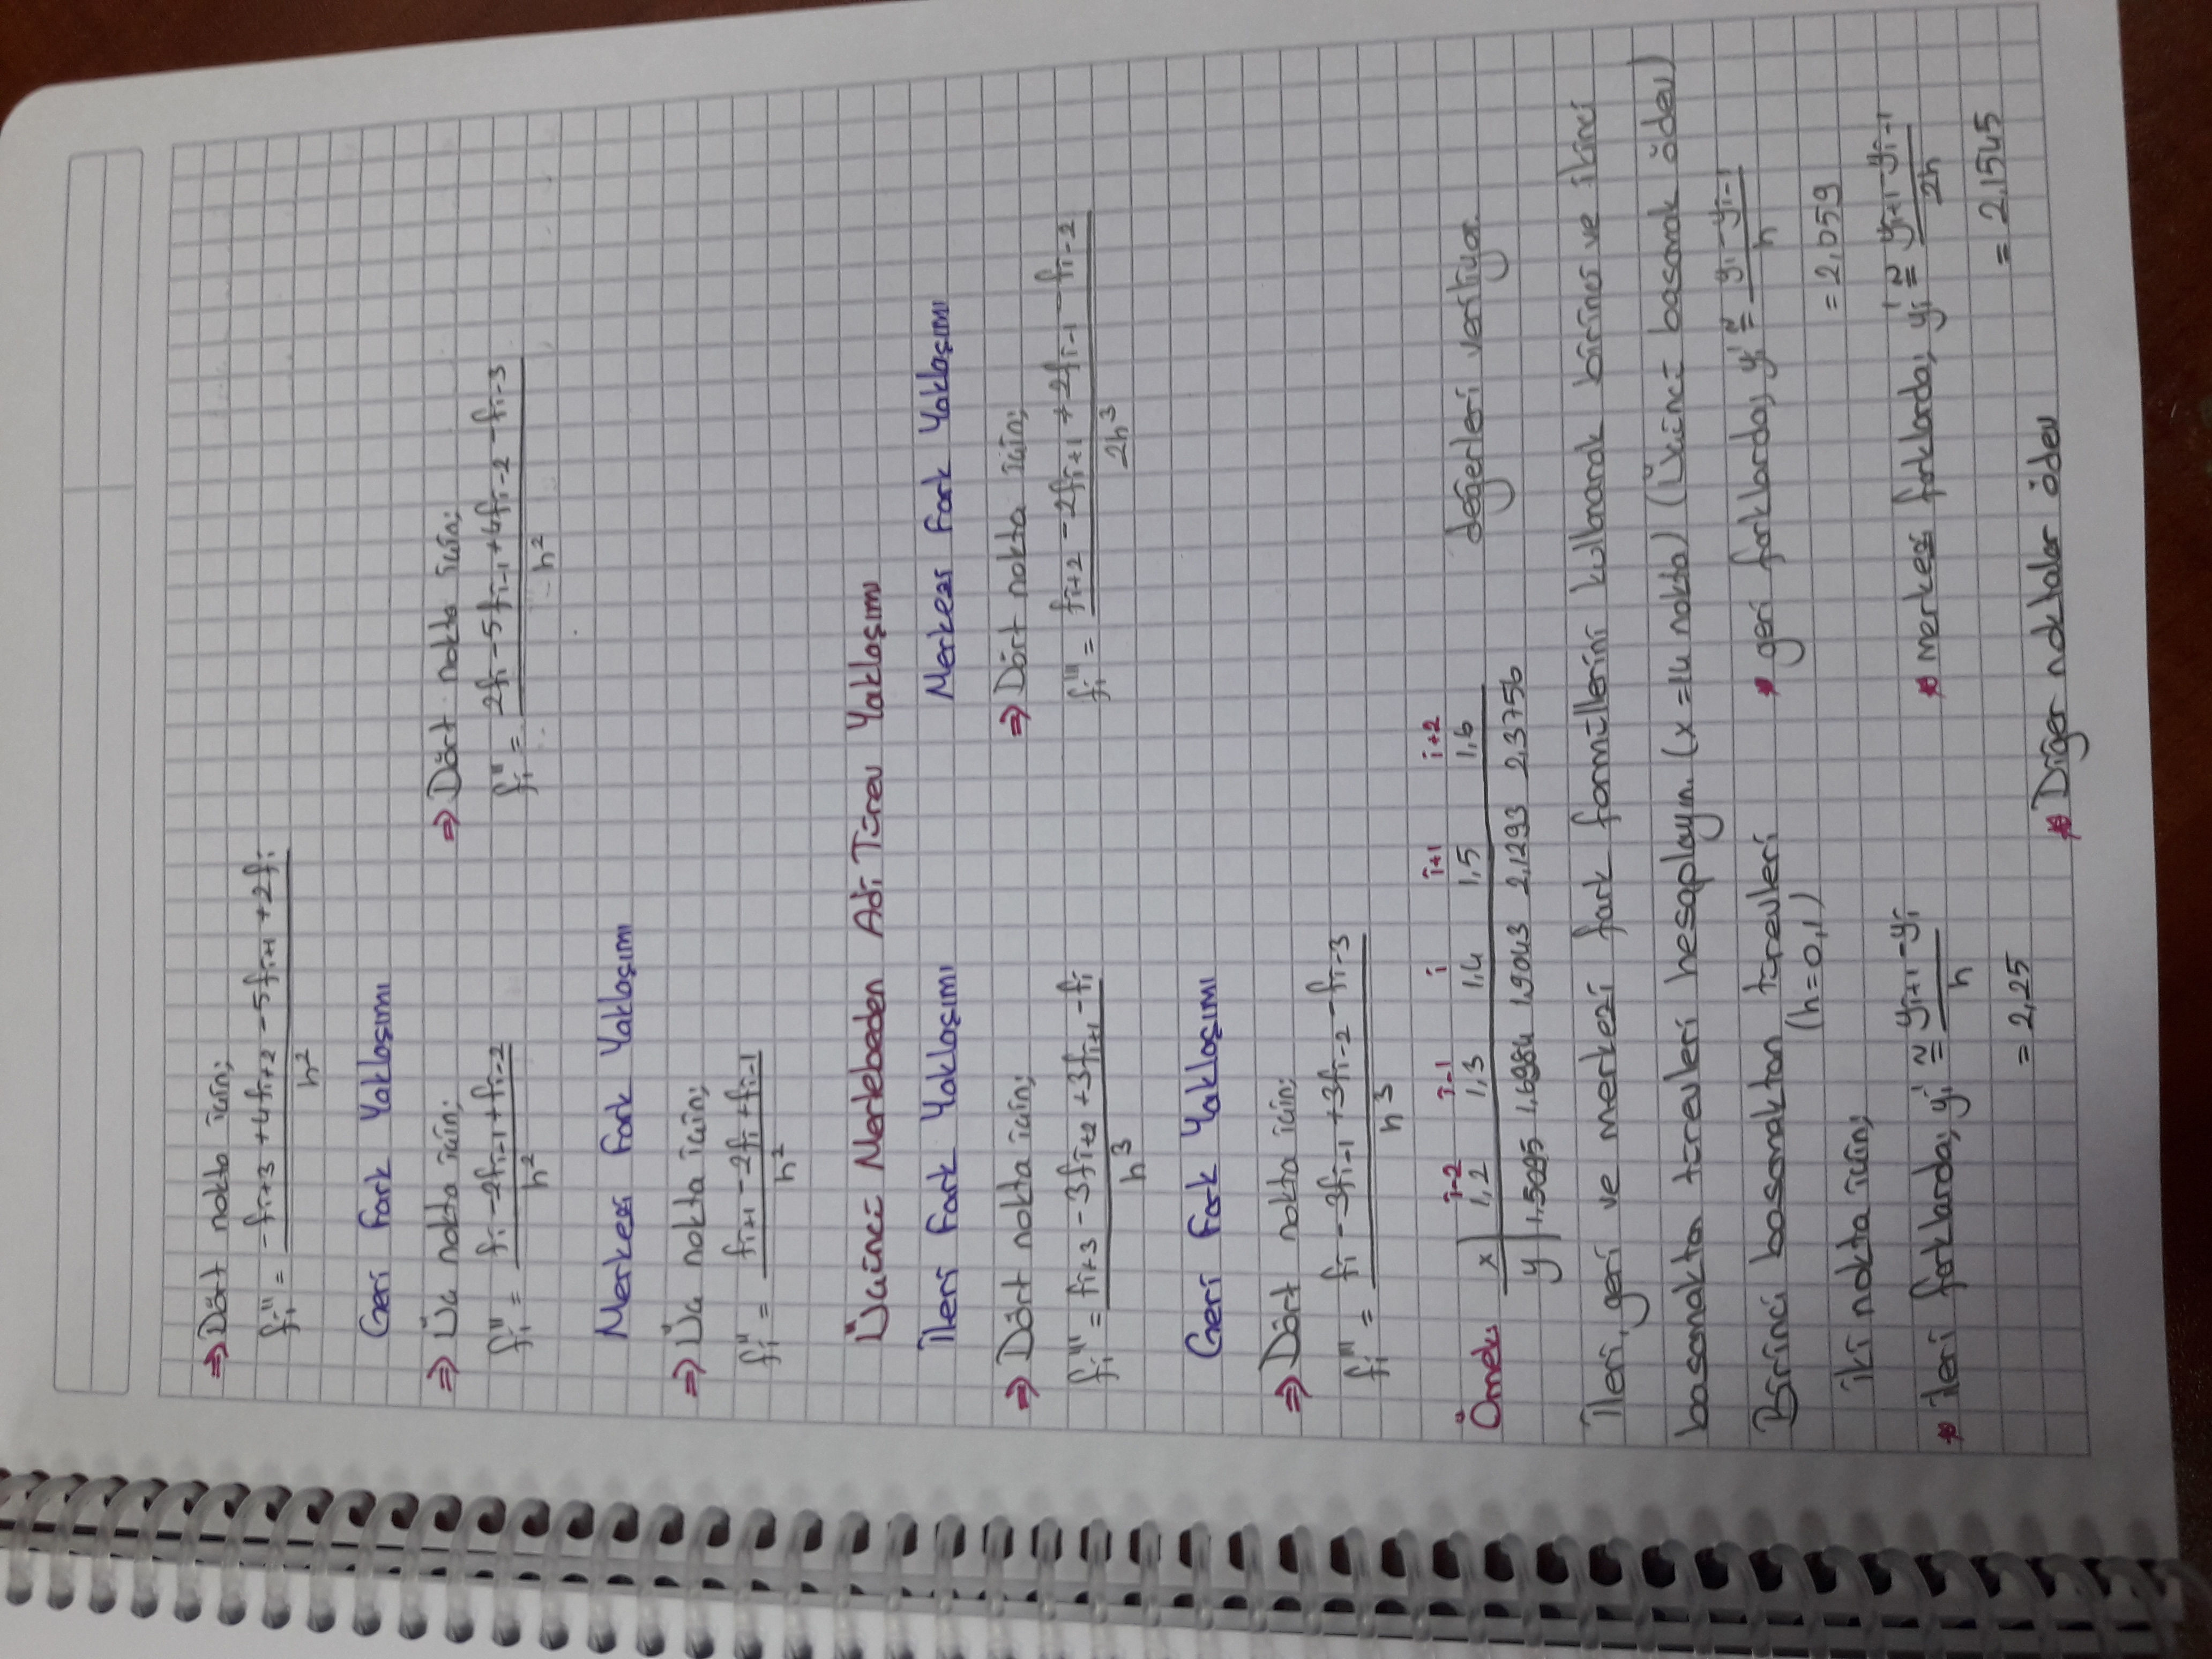 ⇒ Dört nokta için;
fᵢ'' = (-fᵢ₊₃ + 4fᵢ₊₂ - 5fᵢ₊₁ + 2fᵢ) / h²
Geri Fark Yaklaşımı
⇒ Üç nokta için;
fᵢ'' = (fᵢ - 2fᵢ₋₁ + fᵢ₋₂) / h²
⇒ Dört nokta için;
fᵢ'' = (2fᵢ - 5fᵢ₋₁ + 4fᵢ₋₂ - fᵢ₋₃) / h²
Merkezi Fark Yaklaşımı
⇒ Üç nokta için;
fᵢ'' = (fᵢ₊₁ - 2fᵢ + fᵢ₋₁) / h²
Üçüncü Mertebeden Adi Türev Yaklaşımı
İleri Fark Yaklaşımı
⇒ Dört nokta için;
fᵢ''' = (fᵢ₊₃ - 3fᵢ₊₂ + 3fᵢ₊₁ - fᵢ) / h³
Merkezi Fark Yaklaşımı
⇒ Dört nokta için;
fᵢ''' = (fᵢ₊₂ - 2fᵢ₊₁ + 2fᵢ₋₁ - fᵢ₋₂) / 2h³
Geri Fark Yaklaşımı
⇒ Dört nokta için;
fᵢ''' = (fᵢ - 3fᵢ₋₁ + 3fᵢ₋₂ - fᵢ₋₃) / h³
i-2 i-1 i i+1 i+2
Örnek: x | 1,2 1,3 1,4 1,5 1,6 değerleri veriliyor.
y | 1,5095 1,6984 1,9043 2,1293 2,3756
İleri, geri ve merkezi fark formüllerini kullanarak birinci ve ikinci
basamaktan türevleri hesaplayın. (x=1,4 nokta) (Üçüncü basamak ödev)
Birinci basamaktan türevleri
(h=0,1)
iki nokta için;
* ileri farklarda; yᵢ' ≅ (yᵢ₊₁ - yᵢ) / h
= 2,25
* geri farklarda; yᵢ' ≅ (yᵢ - yᵢ₋₁) / h
= 2,059
* merkezi farklarda; yᵢ' ≅ (yᵢ₊₁ - yᵢ₋₁) / 2h
= 2,1545
* Diğer noktalar ödev